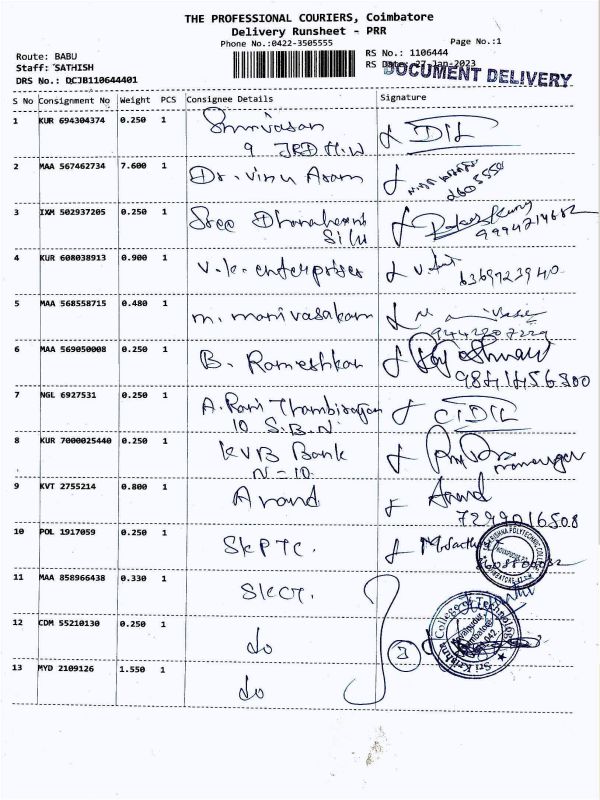 THE PROFESSIONAL COURIERS, Coimbatore
Delivery Runsheet - PRR
Phone No.:0422-3505555
Page No.:1
Route: BABU
RS No.: 1106444
Staff: SATHISH
RS Date: 27-Jan-2023
DOCUMENT DELIVERY
DRS No.: DCJB110644401
S No Consignment No Weight PCS Consignee Details Signature
1 KUR 694304374 0.250 1 Srinivasan
9 3RD H.W
2 MAA 567462734 7.600 1 Dr. Vinu Aram
3 IXM 502937205 0.250 1 Sree
Silu
9994214682
4 KUR 608038913 0.900 1 V.K. enterprises
6369723940
5 MAA 568558715 0.480 1 M. Manivasakam
9442207229
6 MAA 569050008 0.250 1 B. Rameshkan Rajeshwari
9841456300
7 NGL 6927531 0.250 1 A. Rani
10 S.B.N.
8 KUR 7000025440 0.250 1 KVB Bank
N-10 manager
9 KVT 2755214 0.800 1 Anand Anand
7299016508
10 POL 1917059 0.250 1 SKPTC.
11 MAA 858966438 0.330 1 SKCT.
12 CDM 55210130 0.250 1 do
3
13 MYD 2109126 1.550 1 do
Sri Krishna College of Technology
Kovaipudur
Coimbatore